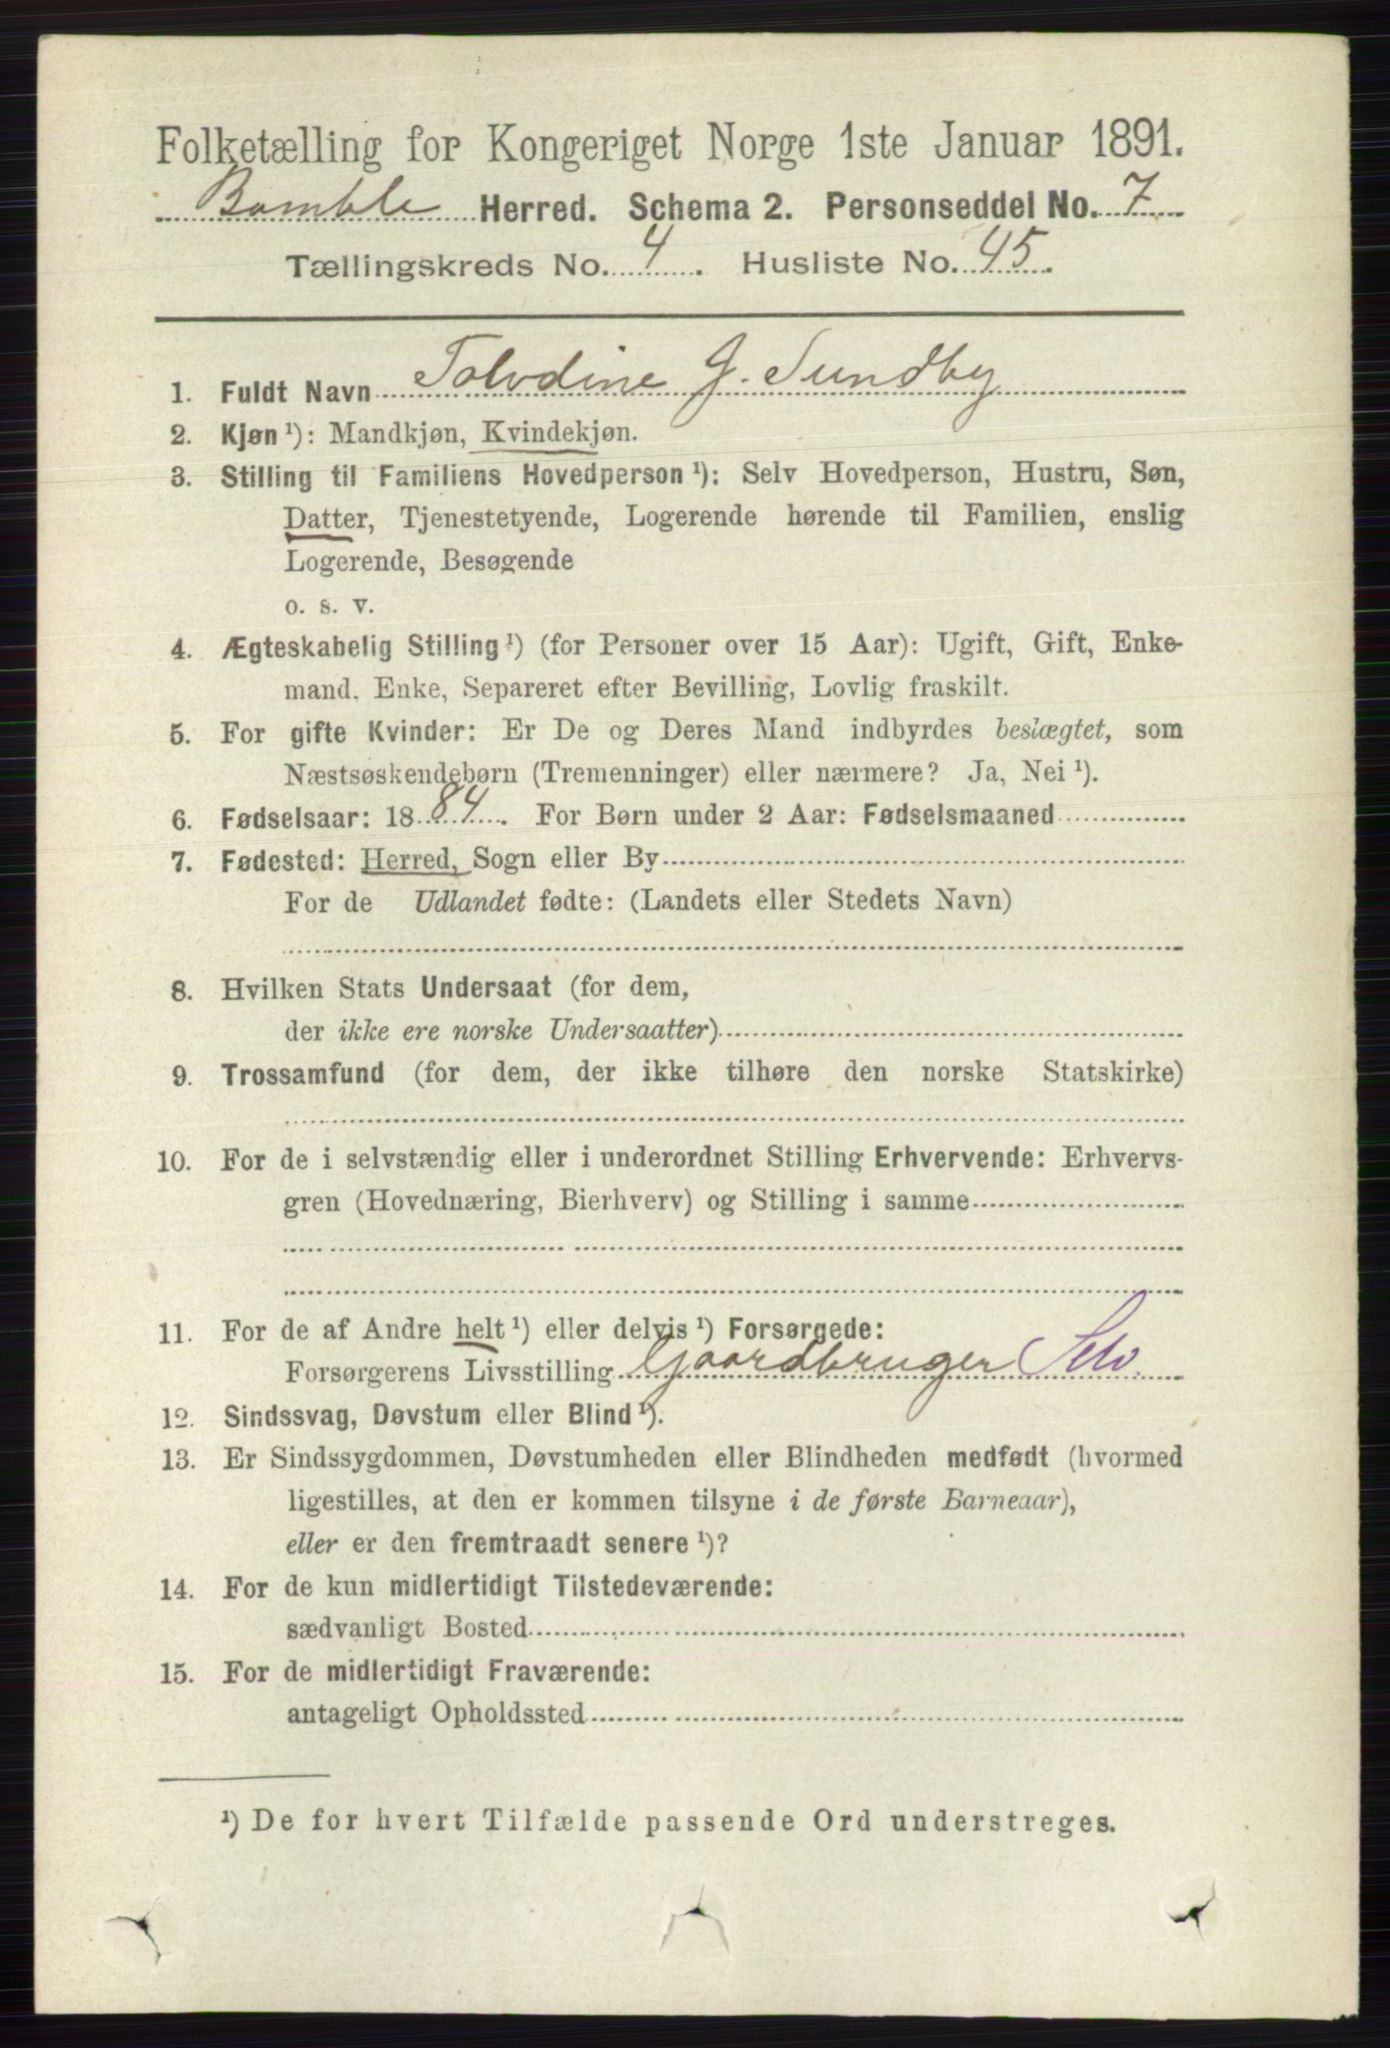 Folketælling for Kongeriget Norge 1ste Januar 1891.
Bamble Herred. Schema 2. Personseddel No. 7
Tællingskreds No. 4. Husliste No. 45.
1. Fuldt Navn Tolvdine G. Sundby
2. Kjøn ¹): Mandkjøn, Kvindekjøn.
3. Stilling til Familiens Hovedperson ¹): Selv Hovedperson, Hustru, Søn,
Datter, Tjenestetyende, Logerende hørende til Familien, enslig
Logerende, Besøgende
o. s. v.
4. Ægteskabelig Stilling ¹) (for Personer over 15 Aar): Ugift, Gift, Enke-
mand. Enke, Separeret efter Bevilling, Lovlig fraskilt.
5. For gifte Kvinder: Er De og Deres Mand indbyrdes beslægtet, som
Næstsøskendebørn (Tremenninger) eller nærmere? Ja, Nei ¹).
6. Fødselsaar: 1884. For Børn under 2 Aar: Fødselsmaaned
7. Fødested: Herred, Sogn eller By
For de Udlandet fødte: (Landets eller Stedets Navn)
8. Hvilken Stats Undersaat (for dem,
der ikke ere norske Undersaatter)
9. Trossamfund (for dem, der ikke tilhøre den norske Statskirke)
10. For de i selvstændig eller i underordnet Stilling Erhvervende: Erhvervs-
gren (Hovednæring, Bierhverv) og Stilling i samme
11. For de af Andre helt ¹) eller delvis ¹) Forsørgede:
Forsørgerens Livsstilling Gaardbruger Selv.
12. Sindssvag, Døvstum eller Blind ¹).
13. Er Sindssygdommen, Døvstumheden eller Blindheden medfødt (hvormed
ligestilles, at den er kommen tilsyne i de første Barneaar),
eller er den fremtraadt senere ¹)?
14. For de kun midlertidigt Tilstedeværende:
sædvanligt Bosted
15. For de midlertidigt Fraværende:
antageligt Opholdssted
¹) De for hvert Tilfælde passende Ord understreges.